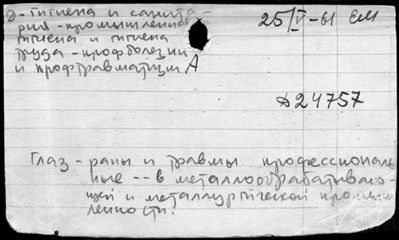 д - гигиена и санита-
рия - промышленная
гигиена и гигиена
труда - профболезни
и профтравматизм А
25/V-61 ЕМ
Д24757
Глаз - раны и травмы профессиональ
ные -- в металлообрабатываю-
щей и металлургической промыш
ленности.